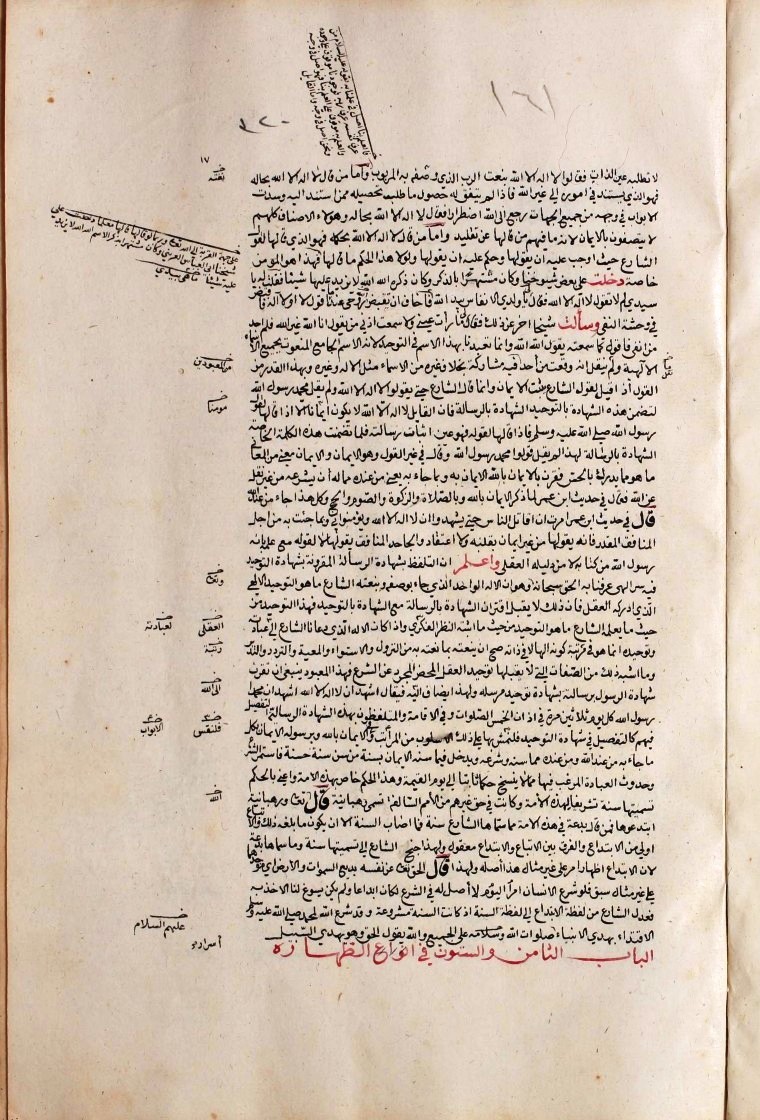 ١٦١
لا تطلبه عين الذات فقالوا لا اله الا الله بنعت الرب الذي وصفه به المربوب وأما من قال لا اله الا الله بحاله
فهو الذي يستند في اموره الى غير الله فاذا لم يتفق له حصول ما طلب تحصيله ممن استند اليه وسدت
الابواب في وجهه من جميع الجهات رجع الى الله اضطرارا فقال لا اله الا الله بحاله وهؤلاء الاصناف كلهم
لا يتصفون بالايمان لانه ما فيهم من قالها عن تقليد وأما من قال لا اله الا الله بحكمه فهو الذي قالها لقول
الشارع حيث اوجب عليه ان يقولها وحكم عليه ان يقولها ولولا هذا الحكم ما قالها فهذا هو المؤمن
خاصة دخلت على بعض شيوخنا وكان مستهترا بالذكر وكان ذكره الله الله لا يزيد عليها شيئا فقلت له يا
سيدي لم لا تقول لا اله الا الله فقال يا ولدي الانفاس بيد الله فأخاف ان يقبض الله روحي عندما اقول لا او لا اله فأقبض
في وحشة النفي وسألت شيخا اخر عن ذلك فقال لي ما رأت عيني ولا سمعت اذني من يقول انا الله غير الله فلم اجد
من انفي فاقول كما سمعته يقول الله الله وانما تعبدنا بهذا الاسم في التوحيد لانه الاسم الجامع المنعوت بجميع الاسماء
الالهية ولم ينقل انه وقعت من احد فيه مشاركة بخلاف غيره من الاسماء مثل الاله وغيره وبهذا القدر من
القول اذا قيل لقول الشارع يثبت الايمان وانما قال الشارع حتى يقولوا لا اله الا الله ولم يقل محمد رسول الله
لتضمن هذه الشهادة بالتوحيد الشهادة بالرسالة فان القايل لا اله الا الله لا يكون مؤمنا الا اذا قالها لقول
رسول الله صلى الله عليه وسلم فاذا قالها لقوله فهو عين اثبات رسالته فلما تضمنت هذه الكلمة الخاصة
الشهادة بالرسالة لهذا لم يقل قولوا محمد رسول الله وقال في غير القول وهو الايمان والايمان معنى من المعاني
ما هو مما يدرك بالحس فقرن بالايمان بالله الايمان به وبما جاء به يعني من عنده مما له ان يشرعه من غير نقل
عن الله فقال في حديث ابن عمر لما ذكر الايمان بالله وبالصلاة والزكوة والصوم والحج وكل هذا جاء من عند الله
قال في حديث ابن عمر امرت ان اقاتل الناس حتى يشهدوا ان لا اله الا الله ويؤمنوا بي وبما جئت به من اجل
المنافق المقلد فانه يقولها من غير ايمان بقلبه ولا اعتقاد والجاحد المنافق يقولها لا لقوله مع علمه بانه
رسول الله من كتابه لا من دليله العقلي واعلم ان التلفظ بشهادة الرسالة المقرونة بشهادة التوحيد
فيه سر الهي عرفنا به الحق سبحانه وهو ان الاله الواحد الذي جاء بوصفه ونعته الشارع ما هو التوحيد الالهي
الذي ادركه العقل فان ذلك لا يقبل اقتران الشهادة بالرسالة مع الشهادة بالتوحيد فهذا التوحيد من
حيث ما يعلمه الشارع ما هو التوحيد من حيث ما اثبته النظر الفكري واذا كان الاله الذي دعانا الشارع الى عبادته
وتوحيده انما هو في مرتبة كونه الها لا في ذاته صح ان ينعته بما نعته به من النزول والاستواء والمعية والتردد والتدبير
وما اشبه ذلك من الصفات التي لا يقبلها توحيد العقل المحض المجرد عن الشرع فهذا المعبود ينبغي ان تقرن
شهادة الرسول برسالته بشهادة توحيد مرسله ولهذا يضاف اليه فيقال اشهد ان لا اله الا الله اشهد ان محمدا
رسول الله كل يوم ثلاثين مرة في اذان الخمس الصلوات وفي الاقامة والمتلفظون بهذه الشهادة الرسالية التفصيل
فيهم كالتفصيل في شهادة التوحيد فلنمش بها على ذلك الاسلوب من المراتب والايمان بالله وبرسوله الايمان بكل
ما جاء به من عند الله ومن عنده مما سنه وشرعه ويدخل فيما سنه الايمان بسنة من سن سنة حسنة فاستمر الشرع
وحدوث العبادة المرغب فيها مما لا ينسخ حكما ثابتا الى يوم القيمة وهذا الحكم خاص بهذه الامة واعني بالحكم
تسميتها سنة تشريفا لهذه الامة وكانت في حق غيرهم من الامم السالفة تسمى رهبانية قال تعالى ورهبانية
ابتدعوها فمن قال بدعة في هذه الامة مما سماها الشارع سنة فما اصاب السنة الا ان يكون ما بلغه ذلك والاتباع
اولى من الابتداع والفرق بين الاتباع والابتداع معقول ولهذا جنح الشارع الى تسميتها سنة وما سماها بدعة
لان الابتداع اظهار امر على غير مثال هذا اصله ولهذا قال الحق تعالى عن نفسه بديع السموات والارض اي موجدها
على غير مثال سبق فلو شرع الانسان امرا اليوم لا اصل له في الشرع لكان ابداعا ولم يكن يسوغ لنا الاخذ به
فعدل الشارع من لفظة الابتداع الى لفظة السنة اذ كانت السنة مشروعة وقد شرع الله لمحمد صلى الله عليه وسلم
الاقتداء بهدي الانبياء صلوات الله وسلامه على الجميع والله يقول الحق وهو يهدي السبيل
الباب الثامن والستون في اسرار الطهارة
نعته
من العبودين
مومنا
وتعالى
العقلي
لعبادته
رتبة
الى الله
فلنقس
الابواب
الله
عليهم السلام
أسرار